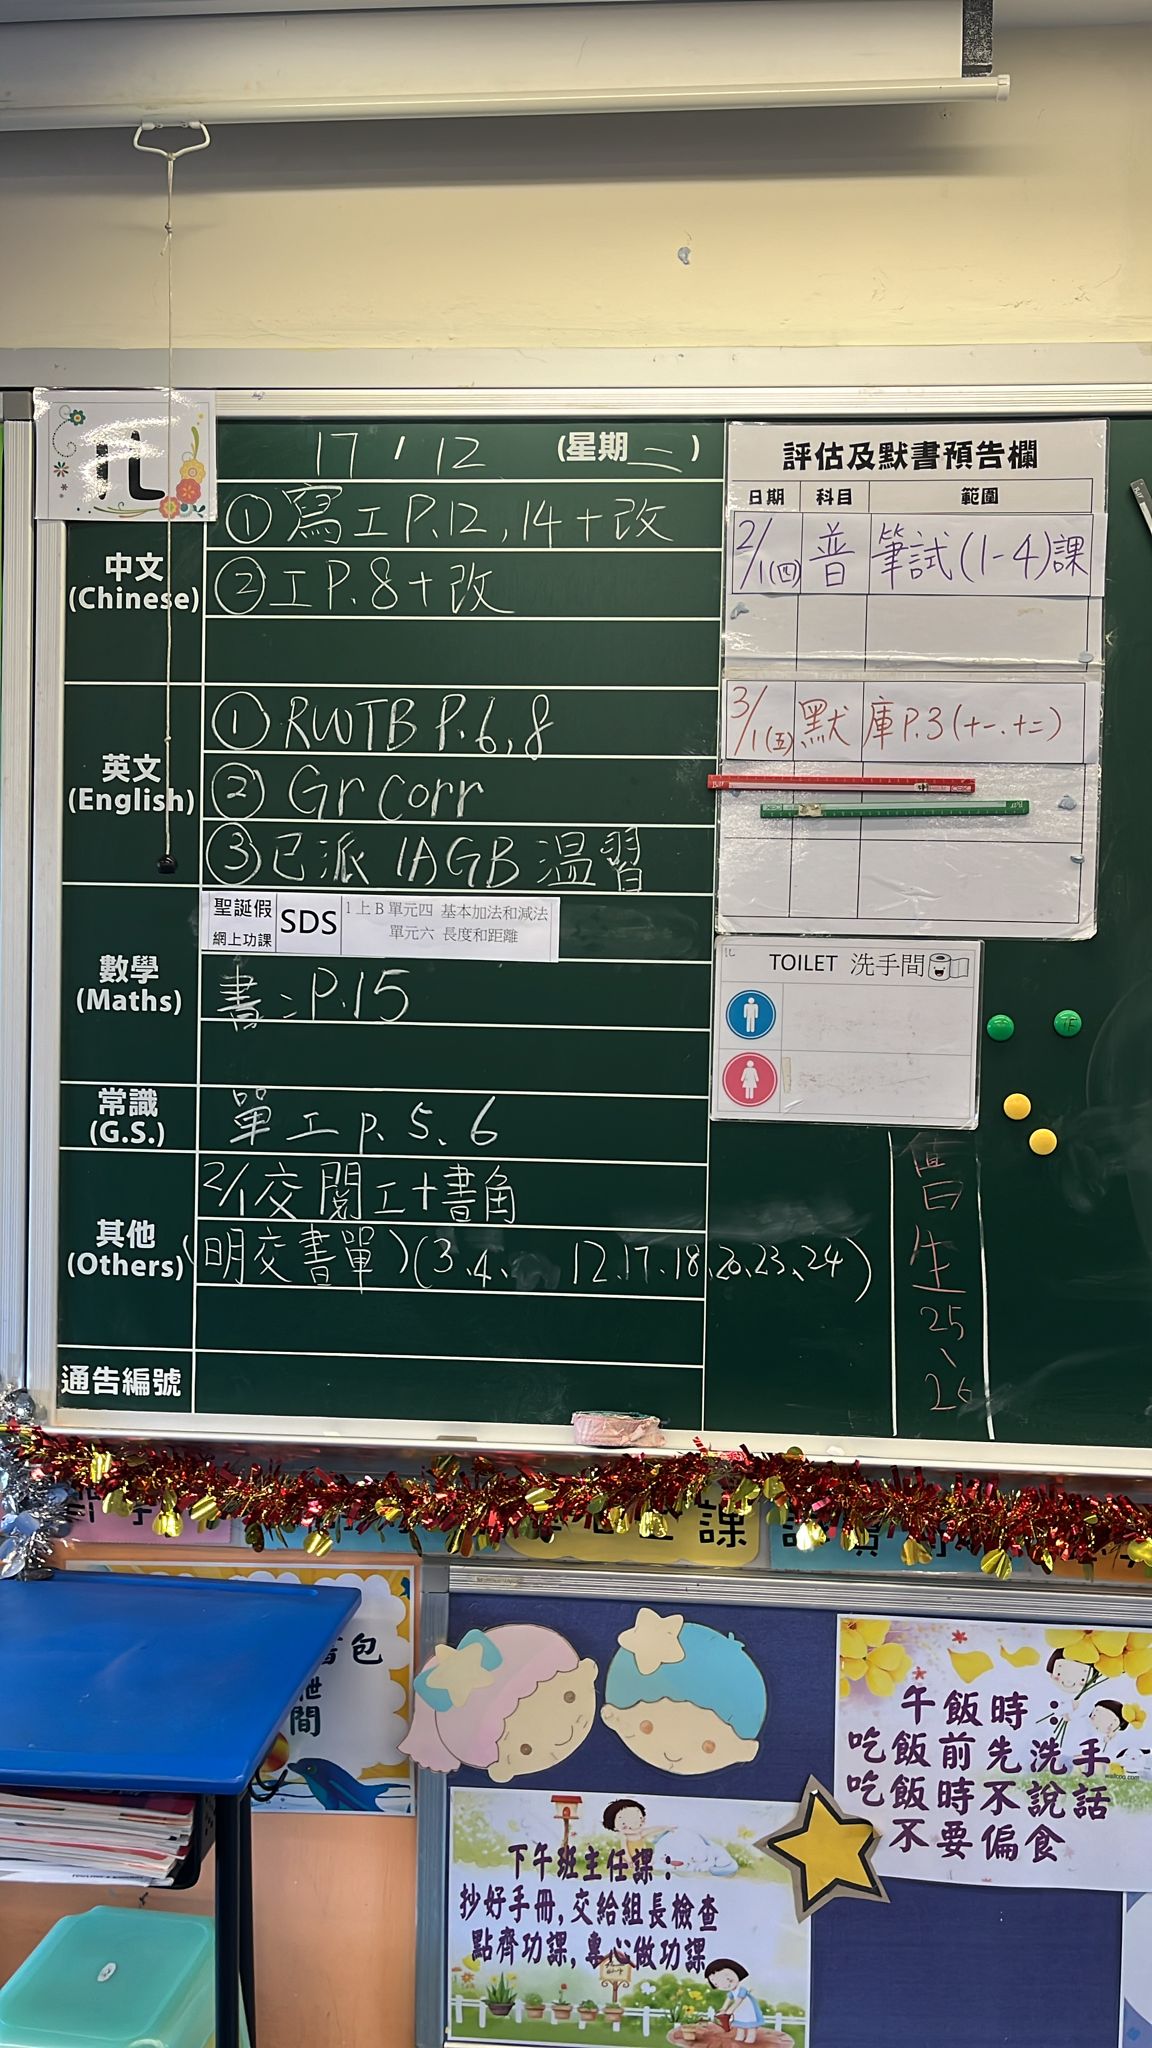 1L
17 / 12 (星期二)
中文
(Chinese)
① 寫工 P.12, 14 + 改
② 工 P.8 + 改
英文
(English)
① RWTB P.6, 8
② Gr Corr
③ 已派 1AGB 溫習
數學
(Maths)
聖誕假
網上功課
SDS
1上B單元四 基本加法和減法
單元六 長度和距離
書: P.15
常識
(G.S.)
單工 p. 5、6
其他
(Others)
2/1交 閱工+書角
(明交書單)(3、4、 12.17、18、20、23、24)
通告編號
評估及默書預告欄
日期 科目 範圍
2/1(四) 普 筆試(1-4)課
3/1(五) 默 庫P.3(十一.十二)
1L
TOILET 洗手間
值日生
25
、
26
課
書包
間
午飯時:
吃飯前先洗手
吃飯時不說話
不要偏食
下午班主任課:
抄好手冊,交給組長檢查
點齊功課,專心做功課